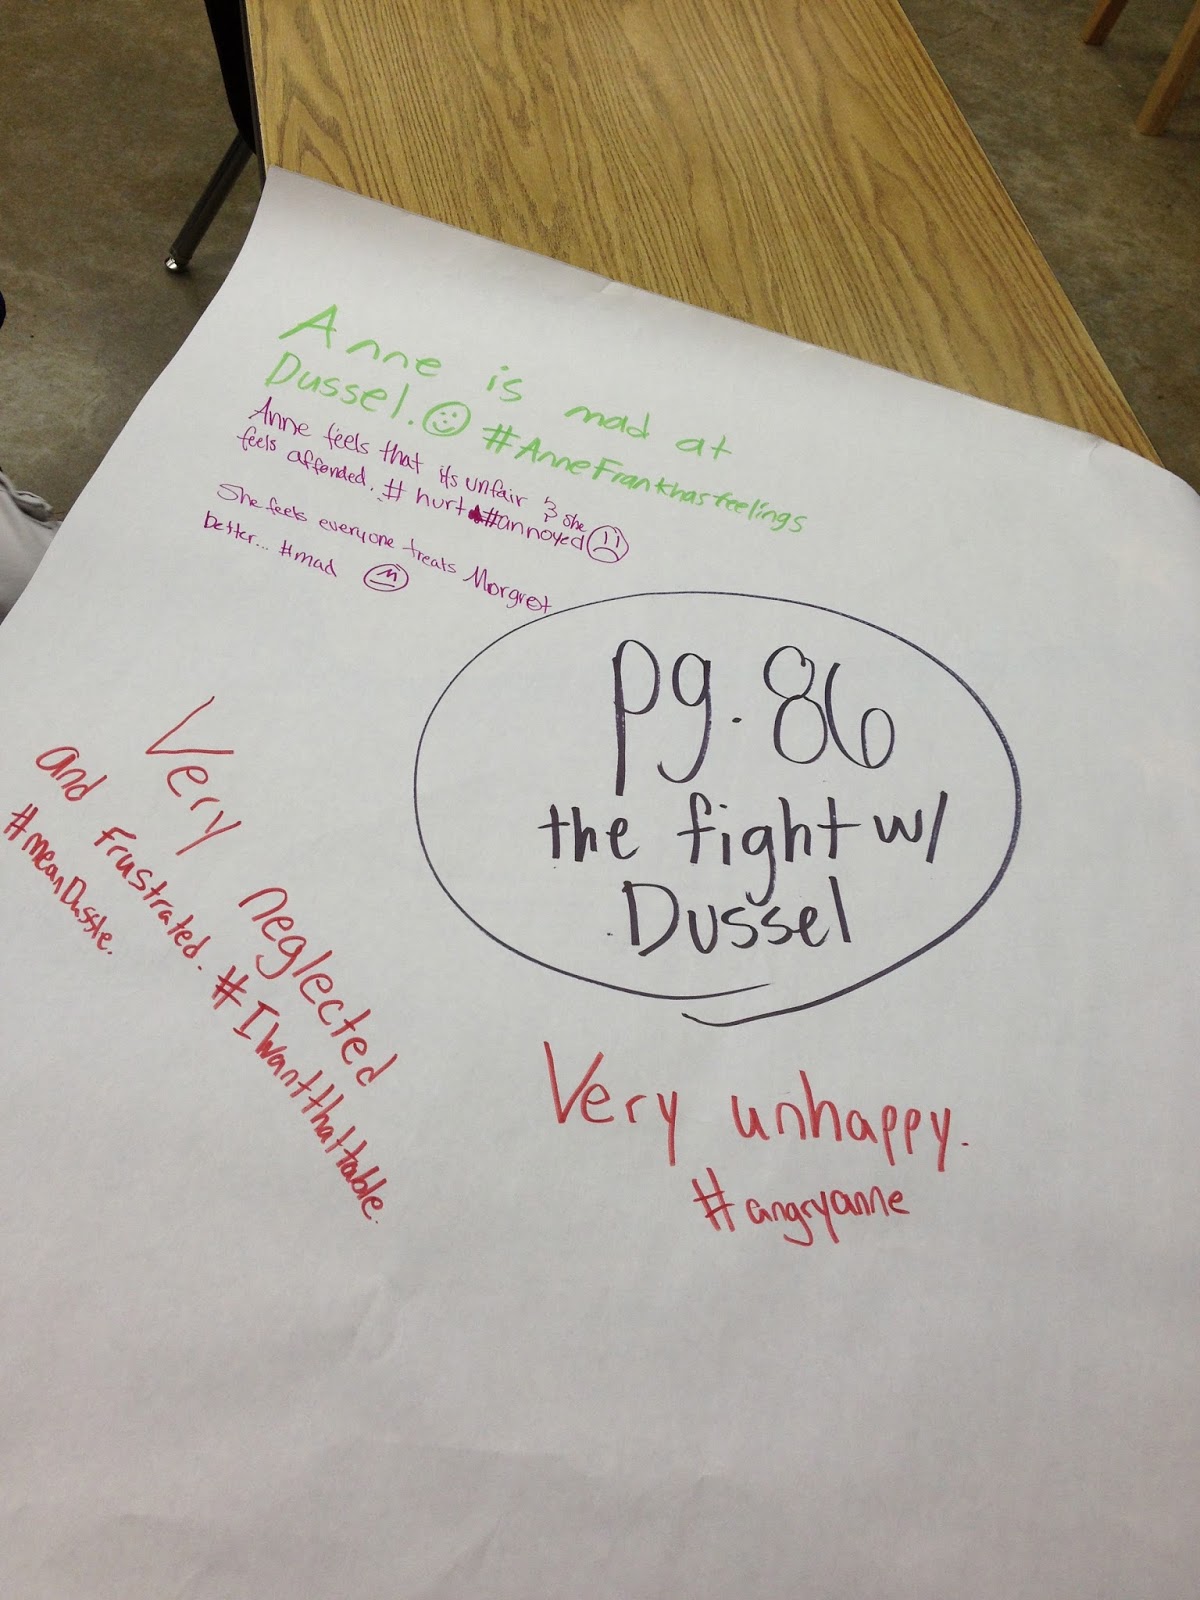 Anne is mad at
Dussel. #AnneFrankhasfeelings
Anne feels that its unfair & she
feels affended. # hurt #annoyed
She feels everyone treats Margret
better... #mad
pg. 86
the fight w/
Dussel
Very neglected
and frustrated. #Iwantthattable.
#meanDussle.
Very unhappy.
#angryanne